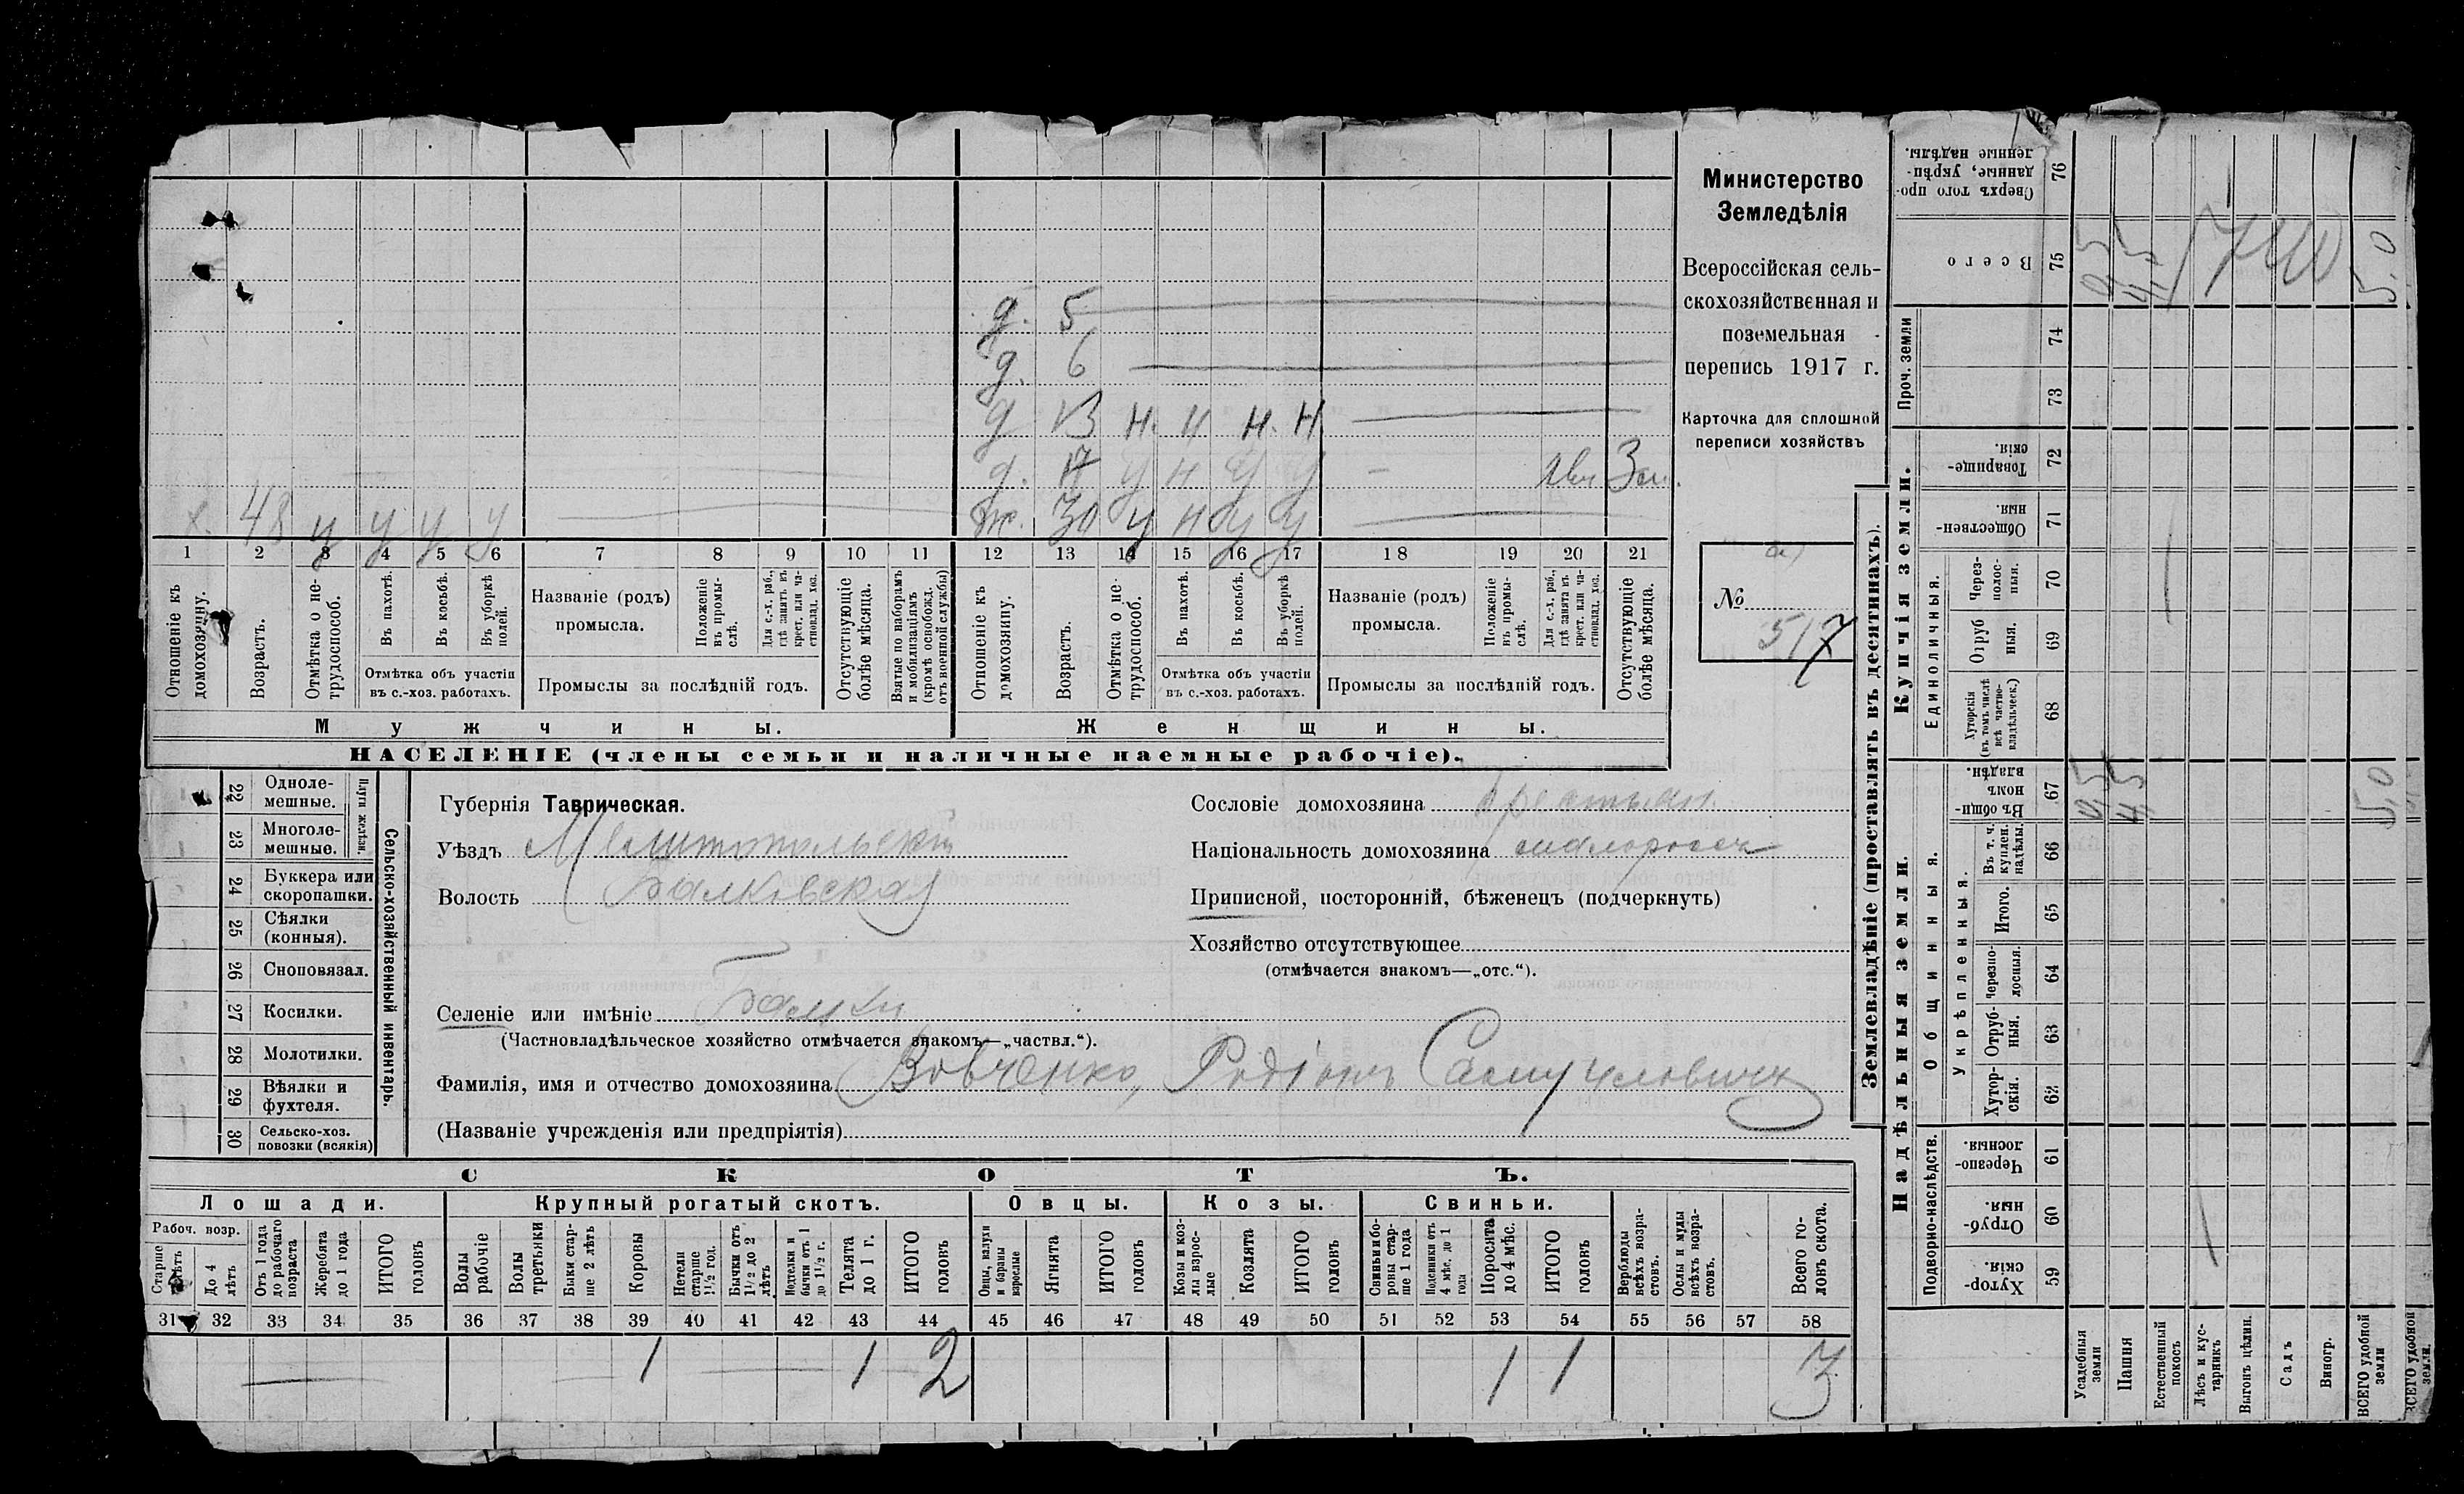 д. 5
д. 6
д 13 н. н н. н
д. 17 у н у у —
х. 48 у у у у
ж. 30 у н у у
1 2 3 4 5 6 7 8 9 10 11 12 13 14 15 16 17 18 19 20 21
Отношеніе къ домохозяину.
Возрастъ.
Отмѣтка о нетрудоспособ.
Въ пахотѣ.
Въ косьбѣ.
Въ уборкѣ полей.
Отмѣтка объ участіи
въ с.-хоз. работахъ.
Названіе (родъ)
промысла.
Положеніе въ промыслѣ.
Для с.-х. раб., гдѣ занятъ въ крест. или частновлад. хоз.
Промыслы за послѣдній годъ.
Отсутствующіе болѣе мѣсяца.
Взятые по наборамъ и мобилизаціямъ (кромѣ освобожд. отъ военной службы)
Отношеніе къ домохозяину.
Возрастъ.
Отмѣтка о нетрудоспособ.
Въ пахотѣ.
Въ косьбѣ.
Въ уборкѣ полей.
Отмѣтка объ участіи
въ с.-хоз. работахъ.
Названіе (родъ)
промысла.
Положеніе въ промыслѣ.
Для с.-х. раб., гдѣ занята въ крест. или частновлад. хоз.
Промыслы за послѣдній годъ.
Отсутствующіе болѣе мѣсяца.
Мужчины.
Женщины.
НАСЕЛЕНІЕ (члены семьи и наличные наемные рабочіе).
Министерство
Земледѣлія
Всероссійская сель-
скохозяйственная и
поземельная
перепись 1917 г.
Карточка для сплошной
переписи хозяйствъ
№
517
22 Одноле-
мешные.
23 Многоле-
мешные.
Плуги желѣзн.
24 Буккера или
скоропашки.
25 Сѣялки
(конныя).
26 Сноповязал.
27 Косилки.
28 Молотилки.
29 Вѣялки и
фухтеля.
30 Сельско-хоз.
повозки (всякія)
Сельско-хозяйственный инвентарь.
Губернія Таврическая.
Уѣздъ Мелитопольскій
Волость Балковская
Селеніе или имѣніе Балки
(Частновладѣльческое хозяйство отмѣчается знакомъ—„частвл.“).
Фамилія, имя и отчество домохозяина Вовченко, Родіонъ Самуиловичъ
(Названіе учрежденія или предпріятія)
Сословіе домохозяина крестьян.
Національность домохозяина малороссъ
Приписной, посторонній, бѣженецъ (подчеркнуть)
Хозяйство отсутствующее
(отмѣчается знакомъ—„отс.“).
СКОТЪ.
Лошади. Крупный рогатый скотъ. Овцы. Козы. Свиньи.
Рабоч. возр.
Старше 4 лѣтъ
До 4 лѣтъ
Отъ 1 года до рабочаго возраста
Жеребята до 1 года
ИТОГО головъ
Волы рабочіе
Волы третьяки
Быки старше 2 лѣтъ
Коровы
Нетели старше 1½ год.
Бычки отъ 1½ до 2 лѣтъ
Нетели и бычки отъ 1 до 1½ г.
Телята до 1 г.
ИТОГО головъ
Овцы, валухи и бараны взрослые
Ягнята
ИТОГО головъ
Козы и козлы взрослые
Козлята
ИТОГО головъ
Свиньи и боровы старше 1 года
Подсвинки отъ 4 мѣс. до 1 года
Поросята до 4 мѣс.
ИТОГО головъ
Верблюды всѣхъ возрастовъ.
Ослы и мулы всѣхъ возрастовъ.
Всего головъ скота.
31 32 33 34 35 36 37 38 39 40 41 42 43 44 45 46 47 48 49 50 51 52 53 54 55 56 57 58
1 1 2 1 1 3
Землевладѣніе (проставлять въ десятинахъ).
Надѣльныя земли.
Купчія земли.
Проч. земли
Сверхъ того проданные, укрѣпленные надѣлы. 76
Всего 75
74
73
Товарищескія. 72
Общественныя. 71
Единоличныя.
Черезполосныя. 70
Отрубныя. 69
Хуторскія (въ томъ числѣ всѣ частновладѣльческ.) 68
Общинныя.
Въ общинномъ владѣн. 67
Въ т. ч. куплен. надѣлы. 66
Укрѣпленныя.
Итого. 65
Черезполосныя 64
Отрубныя. 63
Хуторскія. 62
Подворно-наслѣдств.
Черезполосныя 61
Отрубныя. 60
Хуторскія. 59
Усадебныя земли
Пашня
Естественный покосъ
Лѣсъ и кустарникъ
Выгонъ цѣлин.
Садъ
Виногр.
ВСЕГО удобной земли
ВСЕГО удобной земли.
4,5
5,0
4,5
5,0